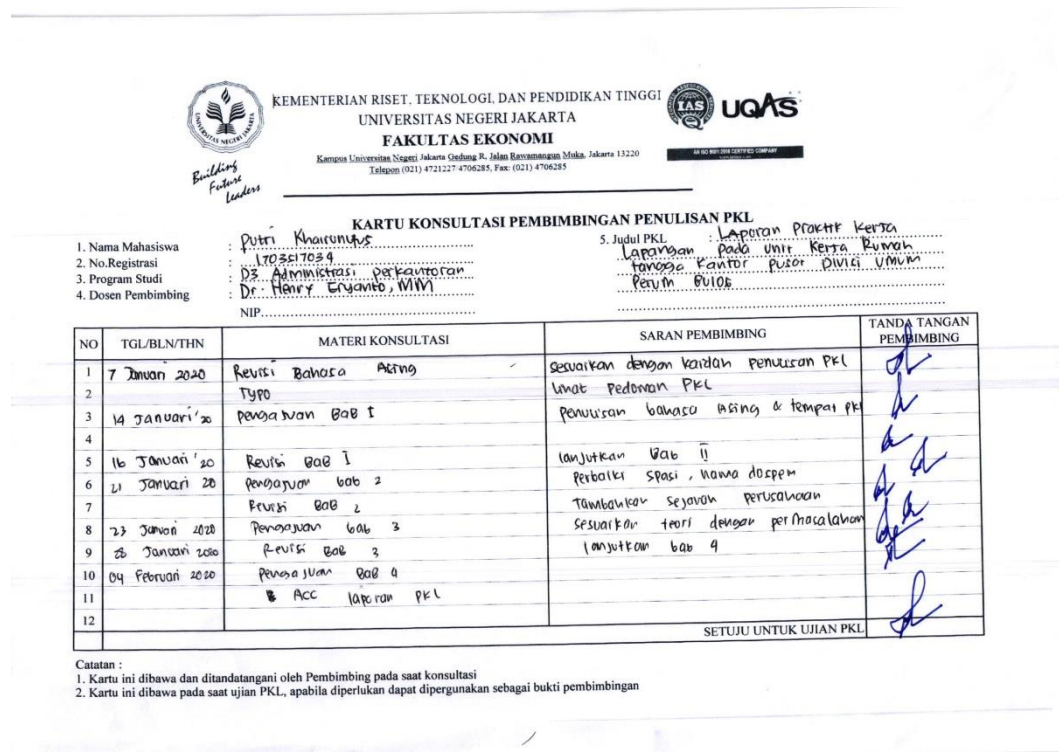 KEMENTERIAN RISET, TEKNOLOGI, DAN PENDIDIKAN TINGGI
UNIVERSITAS NEGERI JAKARTA
FAKULTAS EKONOMI
Kampus Universitas Negeri Jakarta Gedung R, Jalan Rawamangun Muka, Jakarta 13220
Telepon (021) 4721227/4706285, Fax: (021) 4706285
UNIVERSITAS NEGERI JAKARTA
Building
Future
Leaders
IAS
UQAS
AN ISO 9001:2008 CERTIFIED COMPANY
KARTU KONSULTASI PEMBIMBINGAN PENULISAN PKL
1. Nama Mahasiswa : Putri Khairunufus
2. No.Registrasi : 1703517034
3. Program Studi : D3 Administrasi perkantoran
4. Dosen Pembimbing : Dr. Henry Eryanto, MM
NIP
5. Judul PKL : Laporan Praktik Kerja
Lapangan pada Unit Kerja Rumah
tangga Kantor pusat Divisi Umum
Perum BULOG
NO TGL/BLN/THN MATERI KONSULTASI SARAN PEMBIMBING TANDA TANGAN PEMBIMBING
1 7 Januari 2020 Revisi Bahasa Asing sesuaikan dengan kaidah penulisan PKL
2 Typo Lihat Pedoman PKL
3 14 Januari '20 pengajuan BaB I Penulisan bahasa Asing & tempat PKl
4
5 16 Januari '20 Revisi BaB I lanjutkan Bab II
6 21 Januari 20 pengajuan bab 2 Perbaiki spasi, nama dospem
7 Revisi BaB 2 Tambahkan sejarah perusahaan
8 23 Januari 2020 Pengajuan bab 3 sesuaikan teori dengan permasalahan
9 28 Januari 2020 Revisi BaB 3 lanjutkan bab 4
10 04 Februari 2020 Pengajuan BaB 4
11 Acc laporan PKL
12
SETUJU UNTUK UJIAN PKL
Catatan :
1. Kartu ini dibawa dan ditandatangani oleh Pembimbing pada saat konsultasi
2. Kartu ini dibawa pada saat ujian PKL, apabila diperlukan dapat dipergunakan sebagai bukti pembimbingan